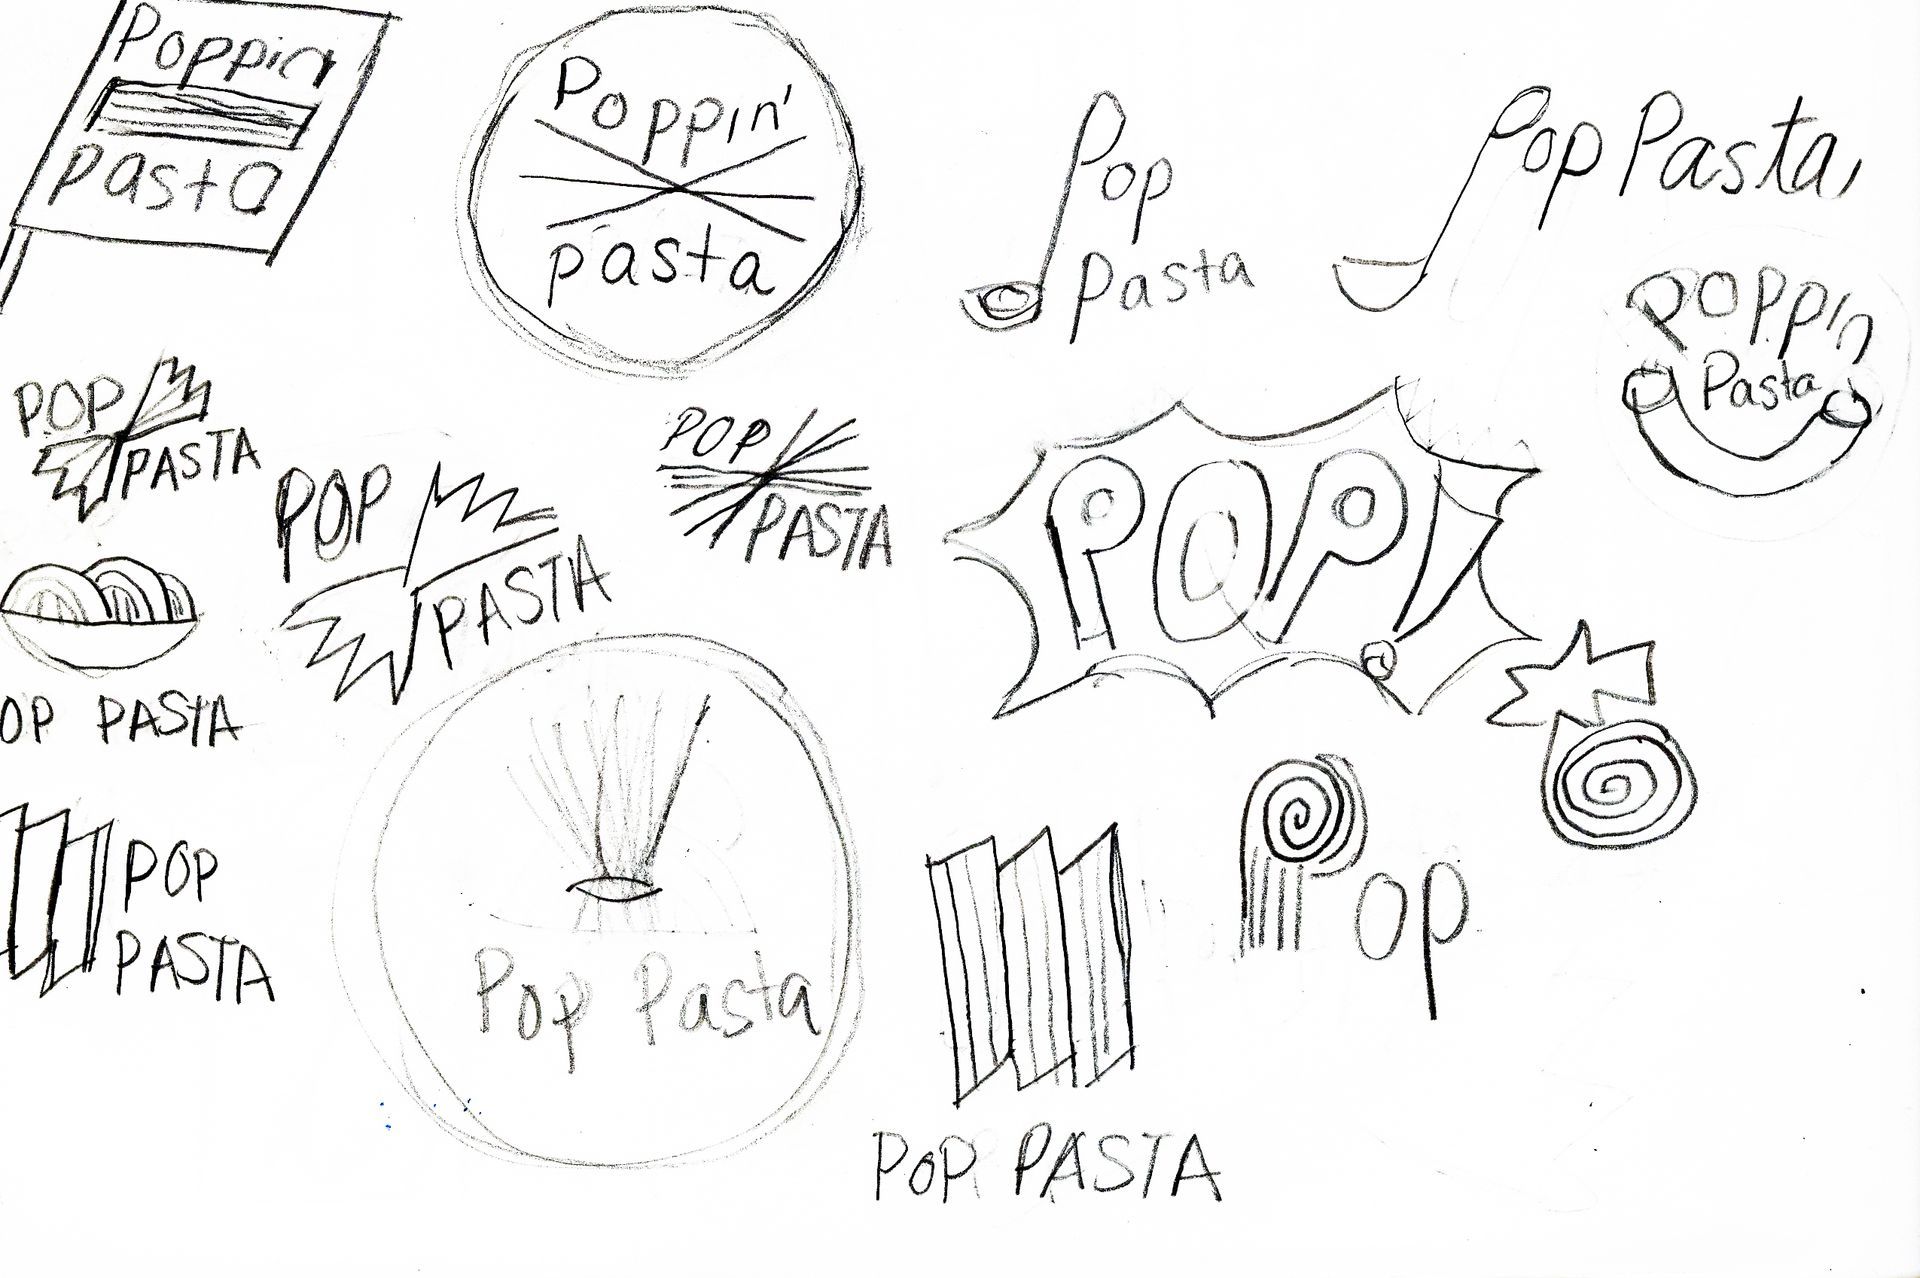 Poppin
pasta
Poppin'
pasta
Pop
Pasta
Pop Pasta
Poppin
Pasta
POP
PASTA
POP
PASTA
POP
PASTA
POP!
OP PASTA
POP
PASTA
Pop Pasta
Pop
POP PASTA